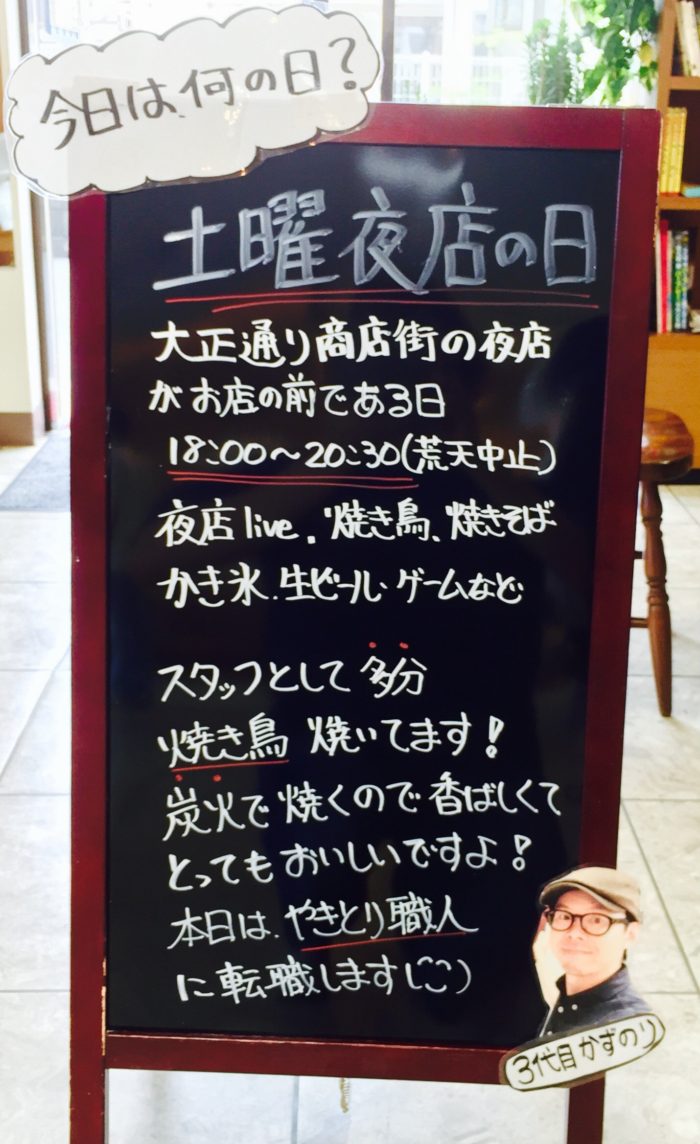 今日は、何の日?
土曜夜店の日
大正通り商店街の夜店
がお店の前である日
18:00〜20:30(荒天中止)
夜店live、焼き鳥、焼きそば
かき氷、生ビール、ゲームなど
スタッフとして多分
焼き鳥 焼いてます!
炭火で焼くので香ばしくて
とってもおいしいですよ!
本日は、やきとり職人
に転職します(ニコ)
3代目かずのり